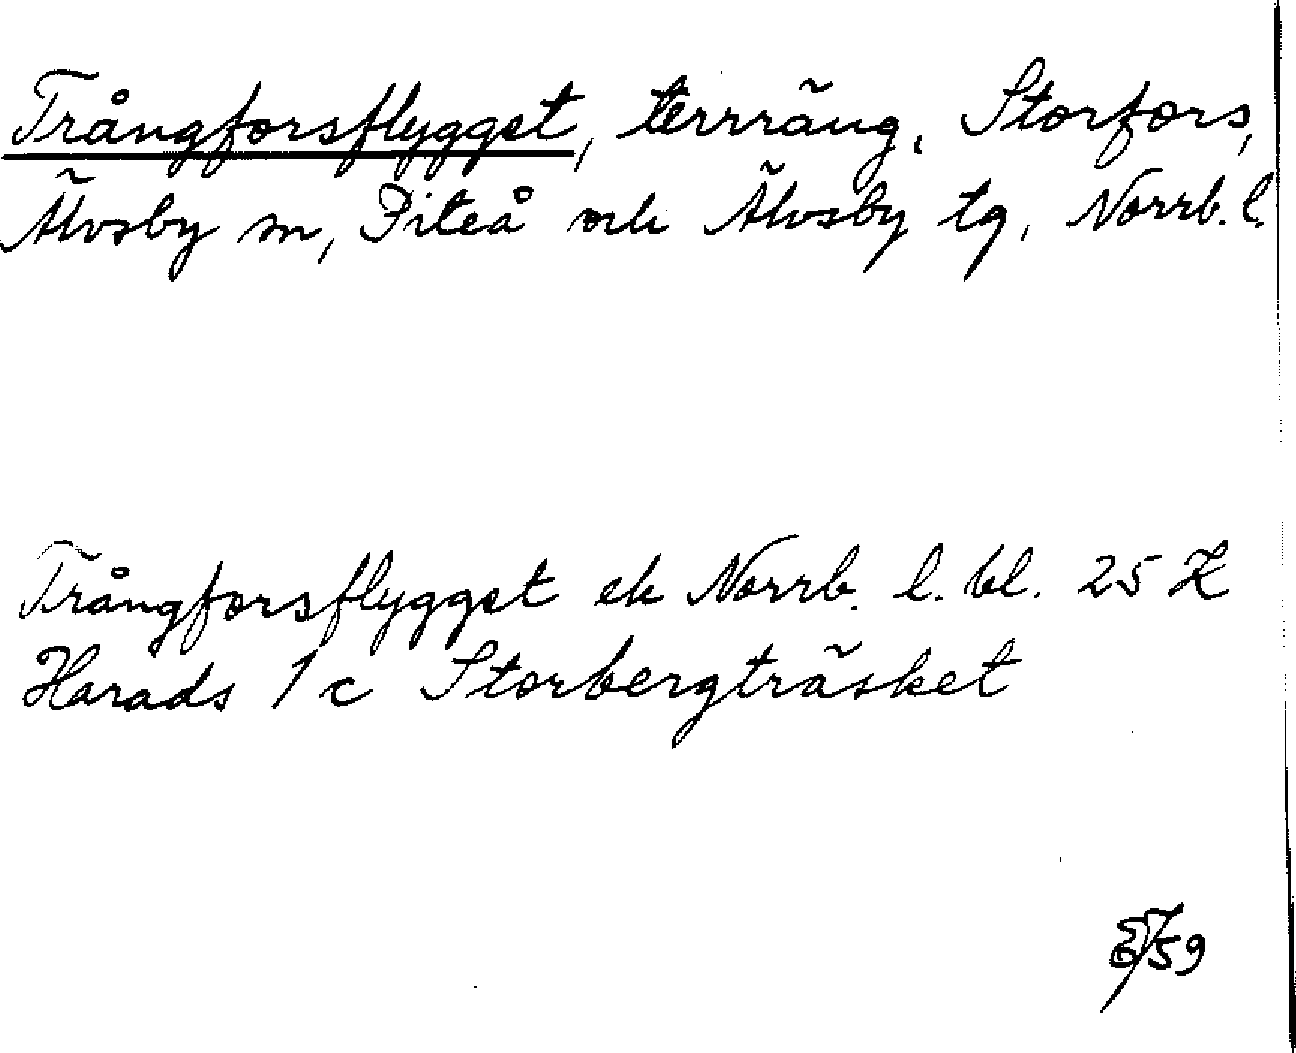 Trångforsflygget, terräng, Storfors,
Älvsby sn, Piteå och Älvsby tg, Norrb. l.
Trångforsflygget ek Norrb. l. bl. 25 K
Harads 1 c Storbergträsket